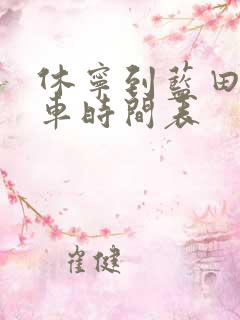 休寧到藍田
車時間表
崔健